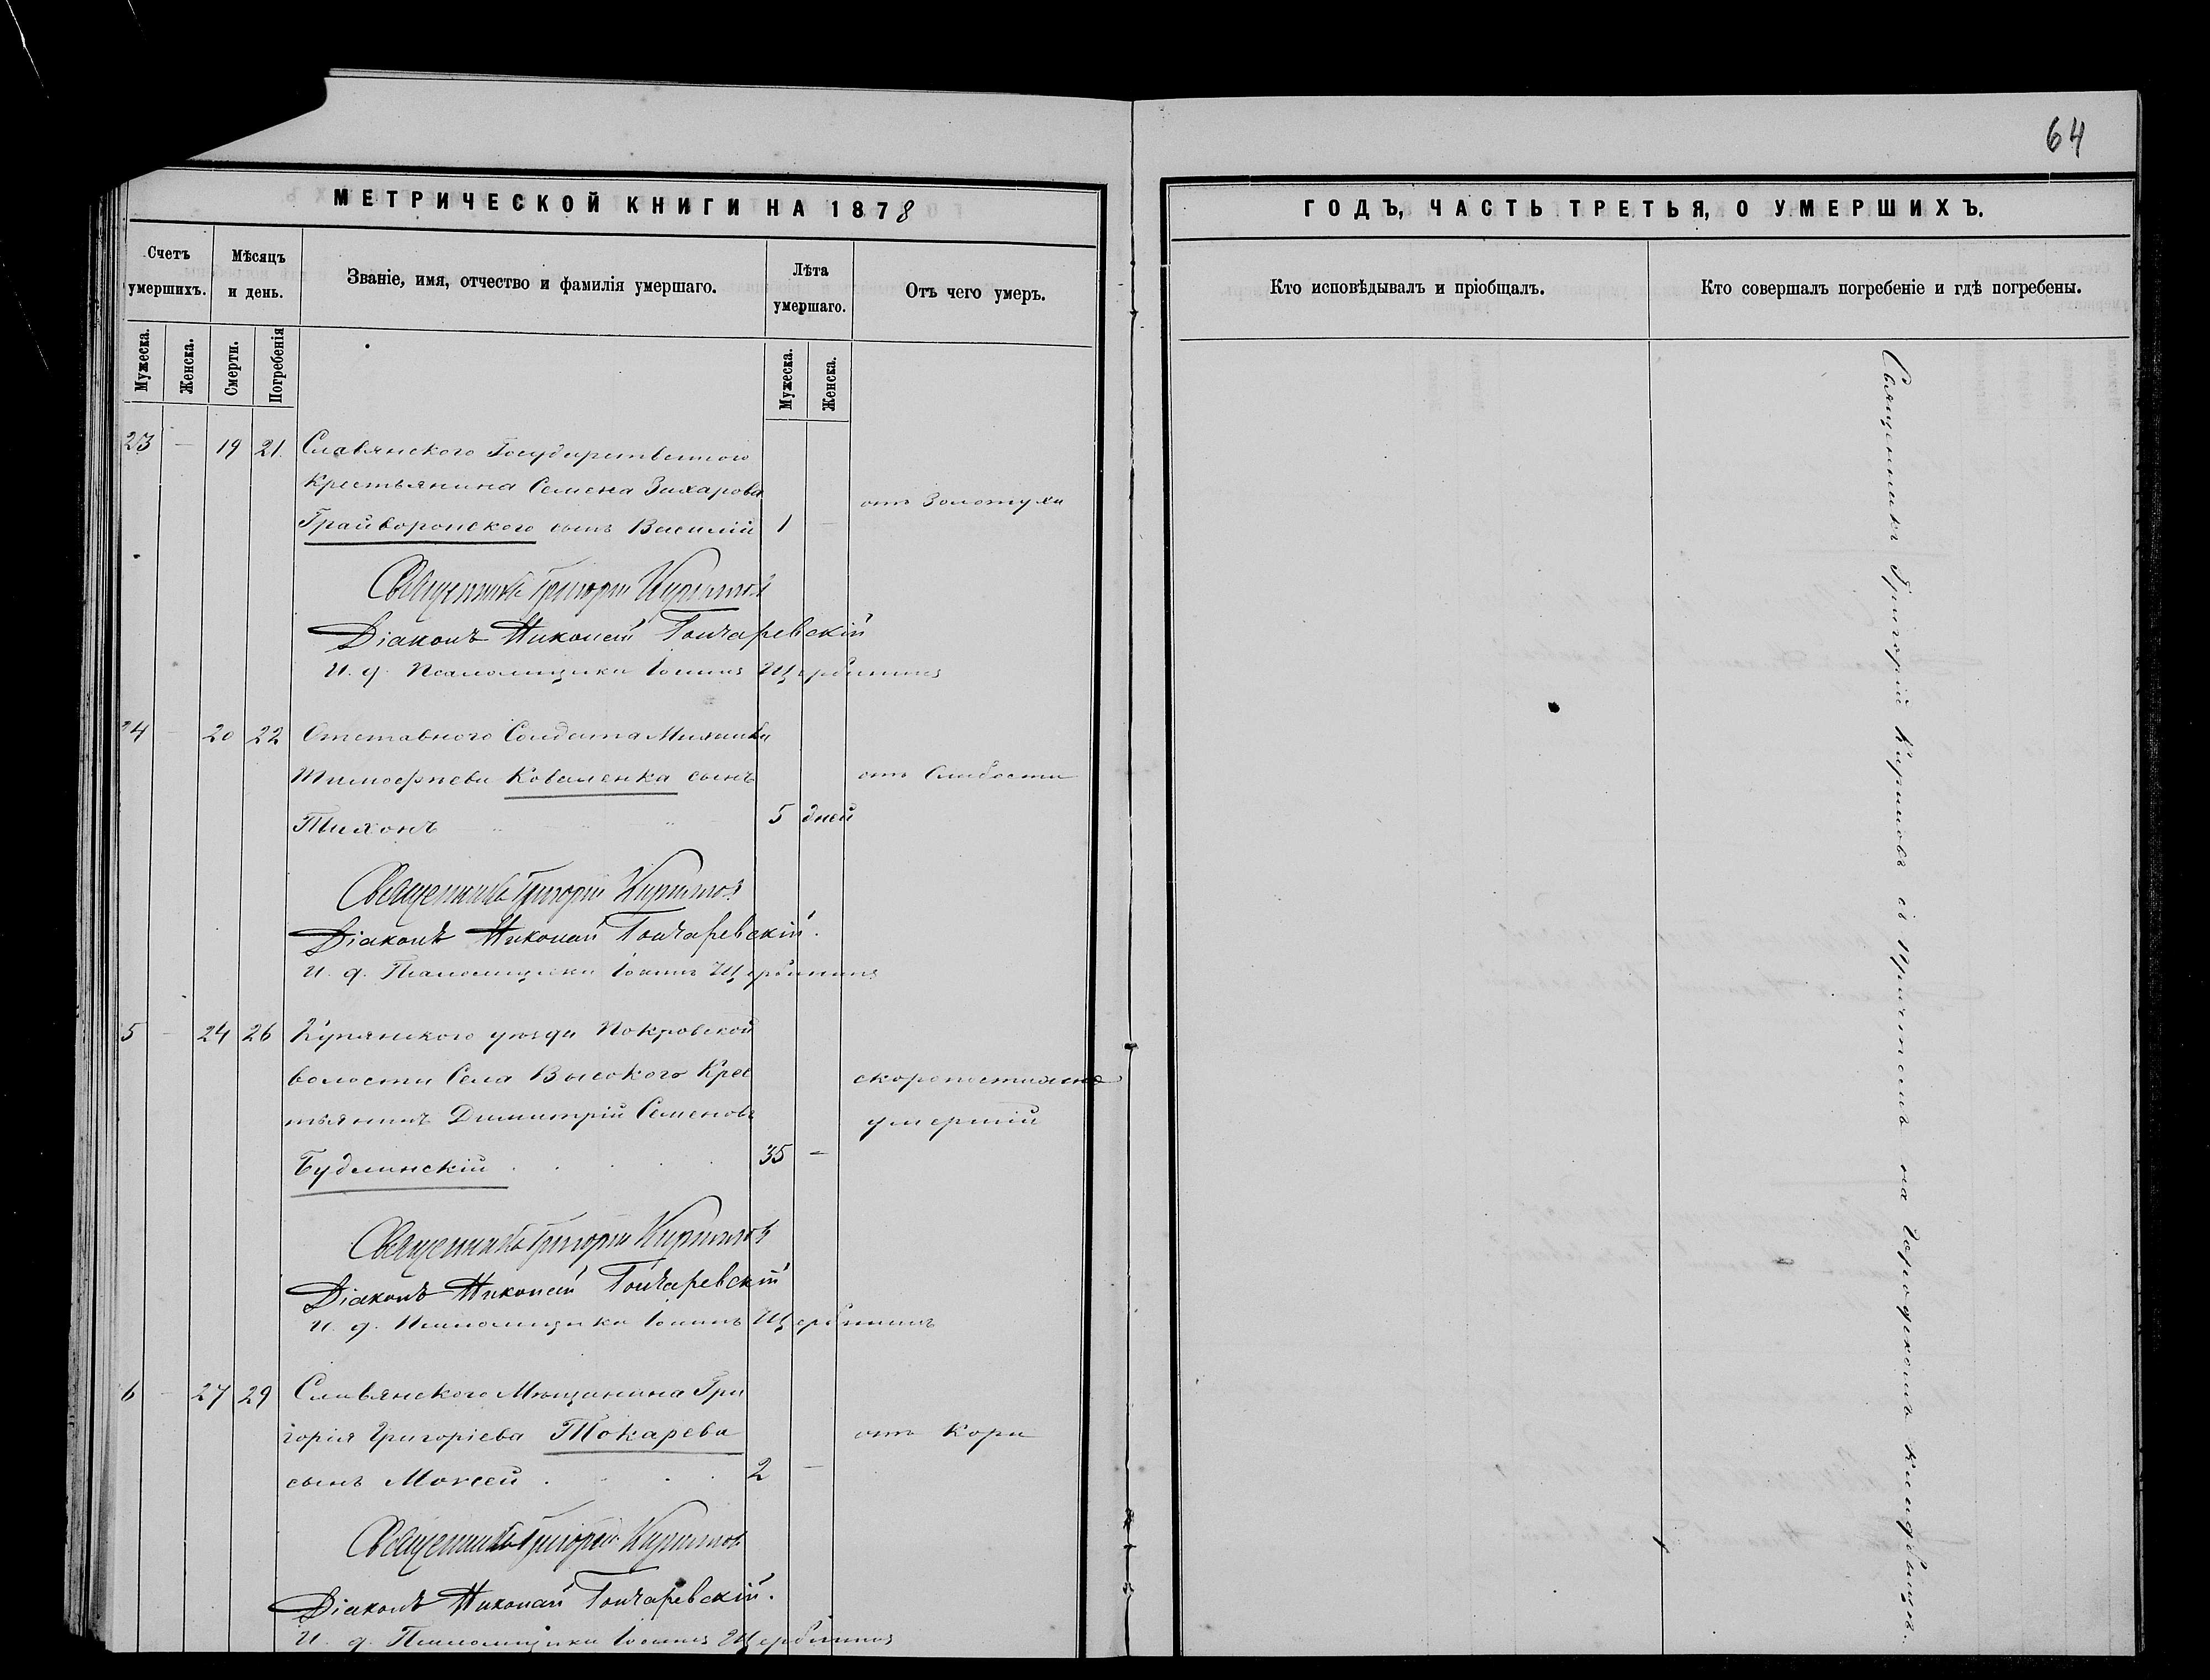 64
МЕТРИЧЕСКОЙ КНИГИ НА 1878
ГОДЪ, ЧАСТЬ ТРЕТЬЯ, О УМЕРШИХЪ.
Счетъ умершихъ.
Мѣсяцъ и день.
Званіе, имя, отчество и фамилія умершаго.
Лѣта умершаго.
Отъ чего умеръ.
Кто исповѣдывалъ и пріобщалъ.
Кто совершалъ погребеніе и гдѣ погребены.
Мужеска.
Женска.
Смерти.
Погребенія
Мужеска.
Женска.
23 – 19 21. Славянского Государственного
Крестьянина Семена Захарова
отъ Золотухи
Грайворонского сынъ Василій 1 –
Священникъ Григорій Кириловъ
Діаконъ Николай Гончаревскій
И. д. Псаломщика Іоаннъ Щербининъ
24 – 20 22 Отставного Солдата Михаила
Тимофѣева Коваленка сынъ
отъ Слабости
Тихонъ 5 дней
Священникъ Григорій Кириловъ
Діаконъ Николай Гончаревскій.
И. д. Псаломщика Іоаннъ Щербининъ
5 – 24 26 Купянского уѣзда Покровской
волости Села Высокого Крес
скоропостижно
тьянинъ Димитрій Семеновъ
умершій
Будлинскій 35 –
Священникъ Григорій Кириловъ
Діаконъ Николай Гончаревскій
И. д. Псаломщика Іоаннъ Щербининъ
6 – 27 29 Славянского Мѣщанина Гри
горія Григоріева Токарева
отъ Кори
сынъ Моисей 2 –
Священникъ Григорій Кириловъ
Діаконъ Николай Гончаревскій.
И. д. Псаломщика Іоаннъ Щербининъ
Священникъ Григорій Кириловъ съ причтомъ на Городскомъ кладбищѣ.